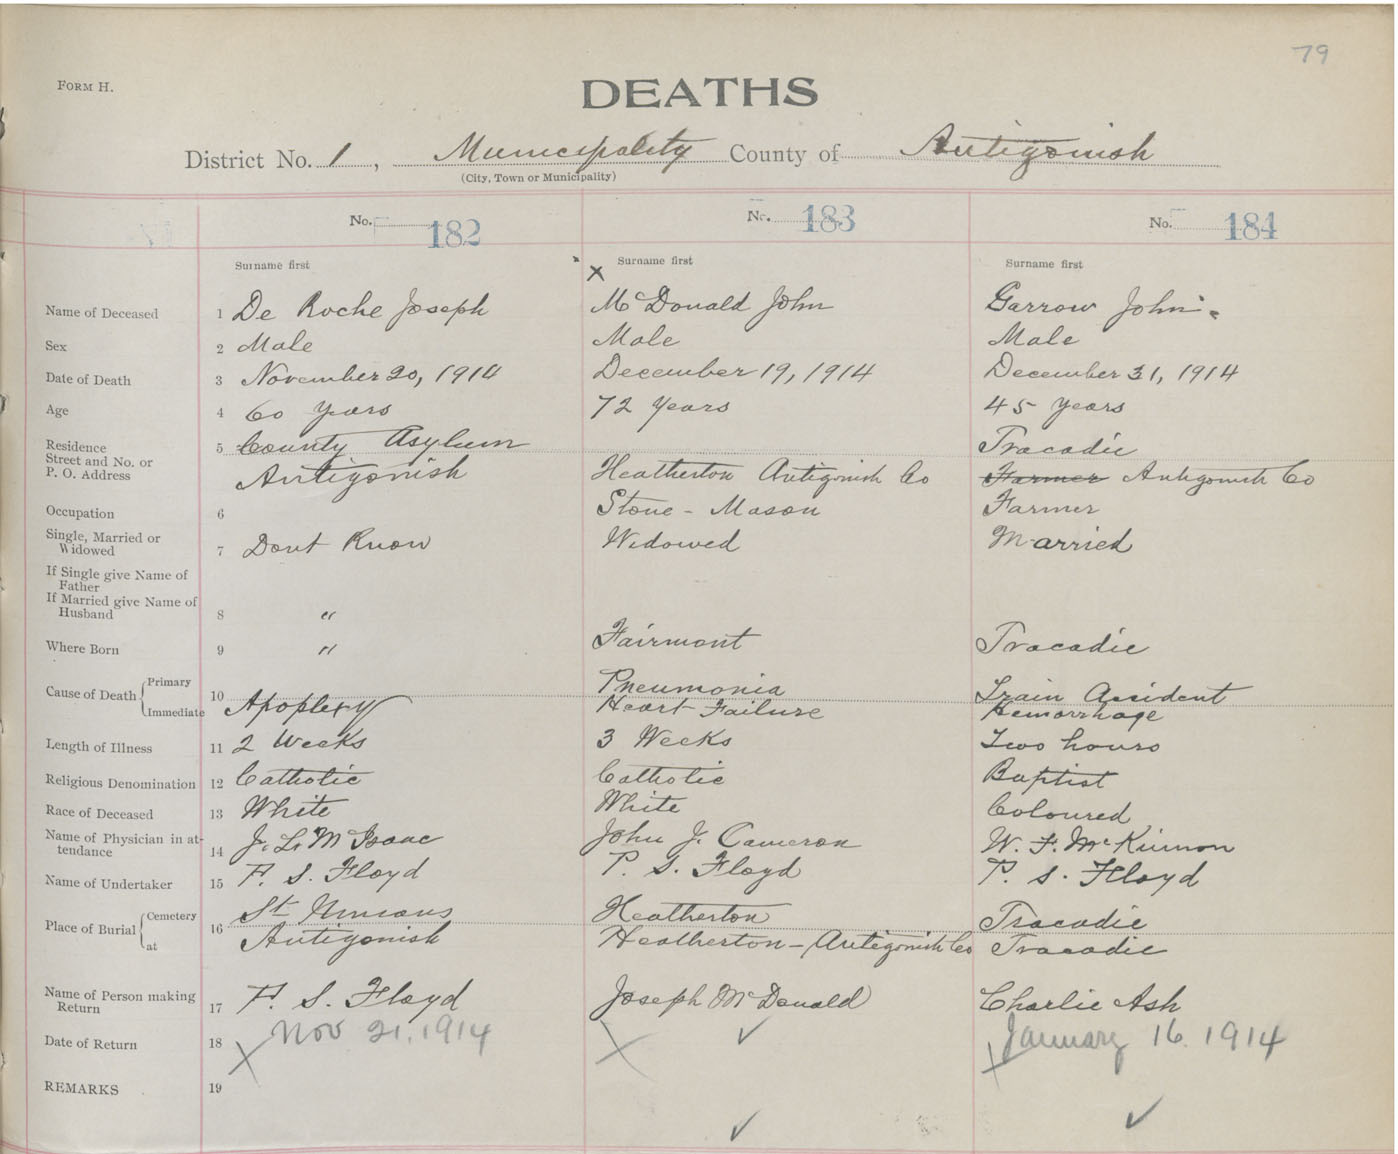 79
FORM H.
DEATHS
District No. 1, Municipality County of Antigonish
(City, Town or Municipality)
No. 182 No. 183 No. 184
Surname first x Surname first Surname first
Name of Deceased 1 De Roche Joseph McDonald John Garrow John
Sex 2 Male Male Male
Date of Death 3 November 20, 1914 December 19, 1914 December 31, 1914
Age 4 60 Years 72 Years 45 Years
Residence 5 County Asylum Tracadie
Street and No. or
P. O. Address Antigonish Heatherton Antigonish Co Farmer Antigonish Co
Occupation 6 Stone - Mason Farmer
Single, Married or
Widowed 7 Dont Know Widowed Married
If Single give Name of
Father
If Married give Name of
Husband 8 "
Where Born 9 " Fairmont Tracadie
Cause of Death Primary 10 Pneumonia Train Accident
Immediate Apoplexy Heart Failure Hemorrhage
Length of Illness 11 2 Weeks 3 Weeks Two hours
Religious Denomination 12 Catholic Catholic Baptist
Race of Deceased 13 White White Coloured
Name of Physician in at-
tendance 14 J. L. McIsaac John J. Cameron W. F. McKinnon
Name of Undertaker 15 F. S. Floyd P. S. Floyd P. S. Floyd
Place of Burial Cemetery 16 St Ninians Heatherton Tracadie
at Antigonish Heatherton - Antigonish Co Tracadie
Name of Person making
Return 17 F. S. Floyd Joseph McDonald Charlie Ash
Date of Return 18 Nov 21. 1914 January 16. 1914
REMARKS 19